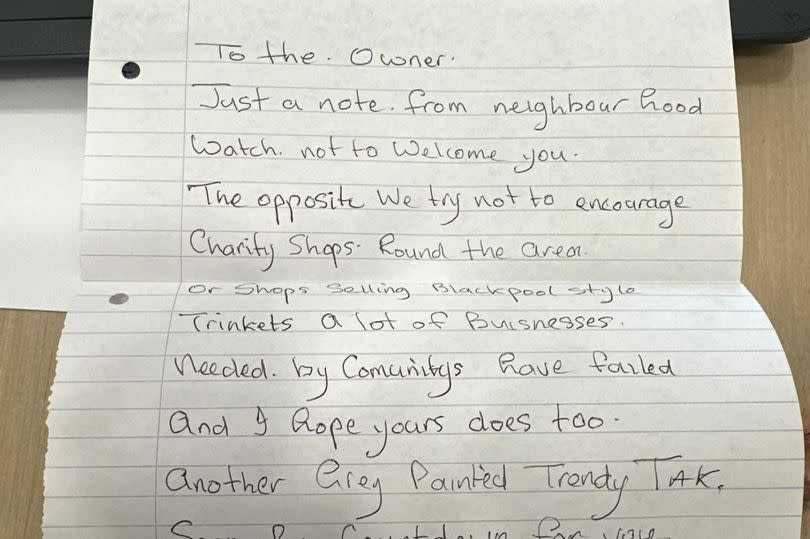 To the. Owner.
Just a note. from neighbour hood
Watch. not to Welcome you.
The opposite We try not to encourage
Charity Shops. Round the area.
Or Shops Selling Blackpool style
Trinkets a lot of Buisnesses.
Needed. by Comunitys have failed
And I hope yours does too.
Another Grey Painted Trendy TAK.
for you